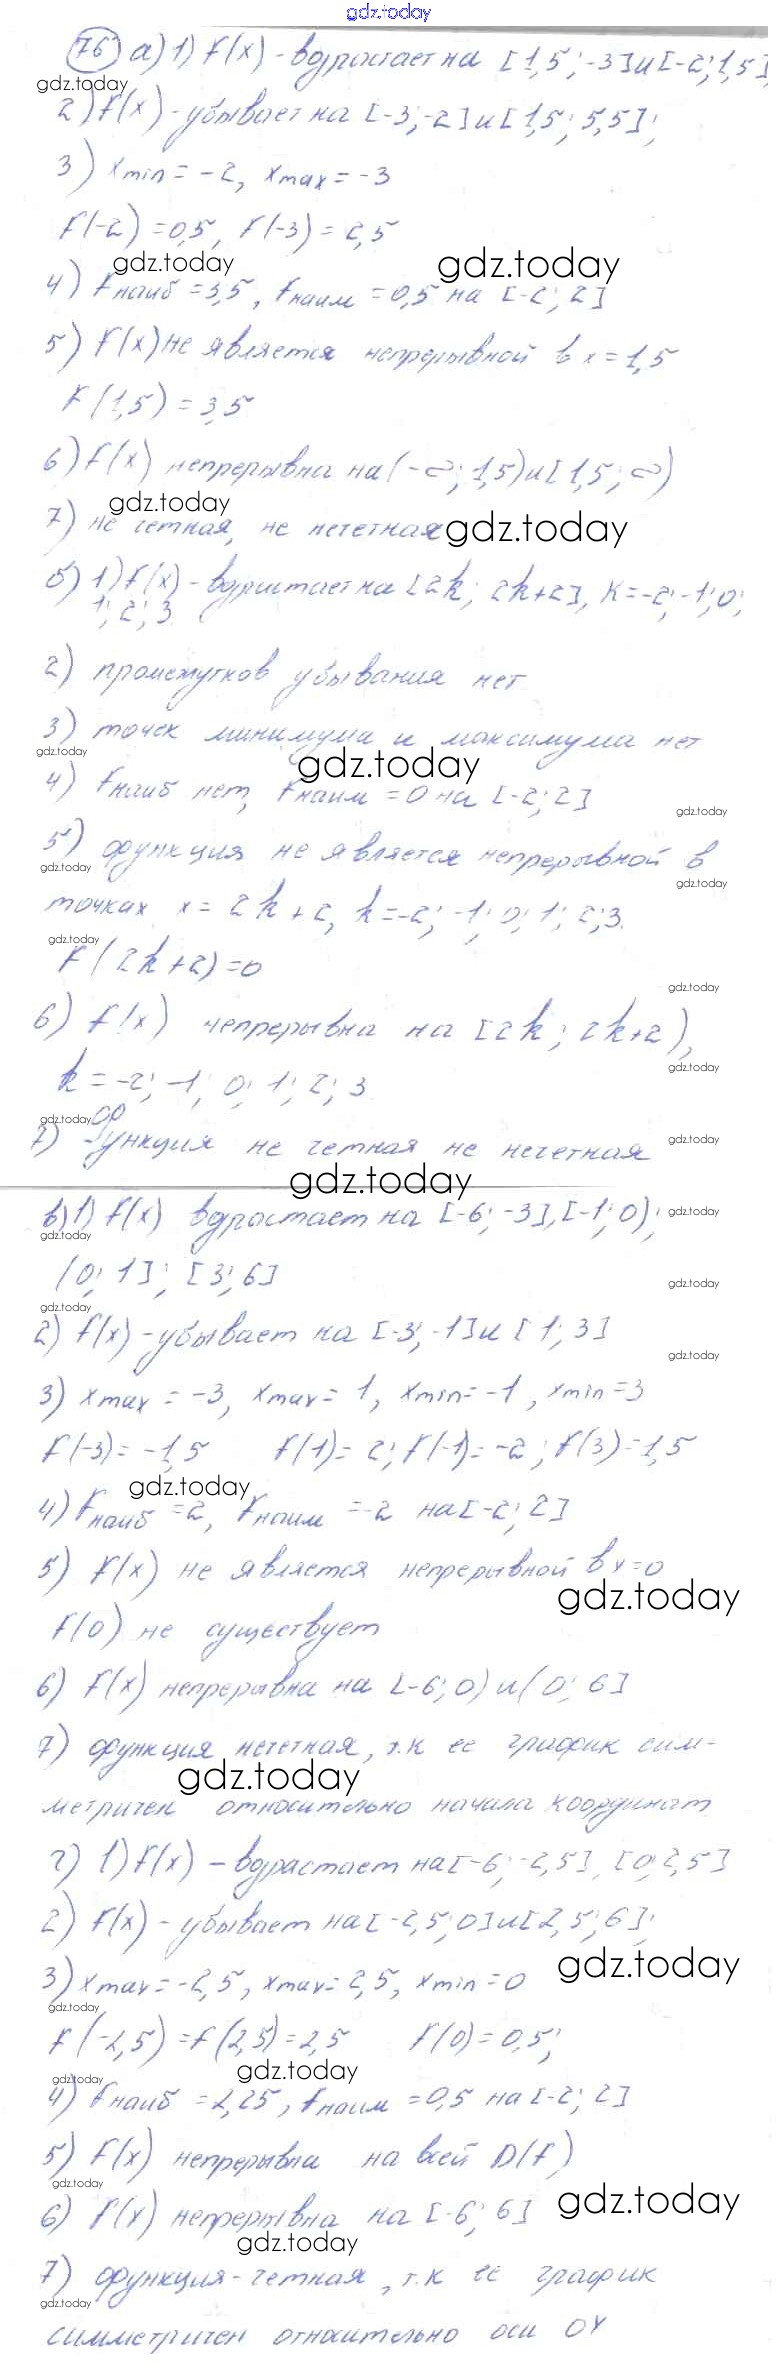 gdz.today
76 а) 1) f(x) - возрастает на [1,5; -3] и [-2; 1,5]
gdz.today
2) f(x) - убывает на [-3; -2] и [1,5; 5,5];
3) xmin = -2, xmax = -3
f(-2) = 0,5, f(-3) = 2,5
gdz.today gdz.today
4) fнаиб = 3,5, fнаим = 0,5 на [-2; 2]
5) f(x) не является непрерывной в x = 1,5
f(1,5) = 3,5
6) f(x) непрерывна на (-∞; 1,5) и [1,5; ∞)
gdz.today
7) не четная, не нечетная gdz.today
б) 1) f(x) - возрастает на [2k; 2k+2], k = -2; -1; 0;
1; 2; 3
2) промежутков убывания нет
3) точек минимума и максимума нет
gdz.today gdz.today
4) fнаиб нет, fнаим = 0 на [-2; 2]
gdz.today
5) функция не является непрерывной в
gdz.today gdz.today
точках x = 2k+2, k = -2; -1; 0; 1; 2; 3.
gdz.today
f(2k+2) = 0
gdz.today
6) f(x) непрерывна на [2k; 2k+2),
gdz.today
k = -2; -1; 0; 1; 2; 3
gdz.today
7) Функция не четная не нечетная
gdz.today
gdz.today
в) 1) f(x) возрастает на [-6; -3], [-1; 0);
gdz.today gdz.today
(0; 1]; [3; 6]
gdz.today
gdz.today
2) f(x) - убывает на [-3; -1] и [1; 3]
gdz.today
3) xmax = -3, xmax = 1, xmin = -1, xmin = 3
f(-3) = -1,5 f(1) = 2; f(-1) = -2; f(3) = 1,5
gdz.today
4) fнаиб = 2, fнаим = -2 на [-2; 2]
5) f(x) не является непрерывной в x = 0
gdz.today
f(0) не существует
6) f(x) непрерывна на [-6; 0) и (0; 6]
7) функция нечетная, т.к ее график сим-
gdz.today
метричен относительно начала координат
г) 1) f(x) - возрастает на [-6; -2,5], [0; 2,5]
2) f(x) - убывает на [-2,5; 0] и [2,5; 6];
gdz.today
3) xmax = -2,5, xmax = 2,5, xmin = 0
gdz.today
f(-2,5) = f(2,5) = 2,5 f(0) = 0,5;
gdz.today
gdz.today
4) fнаиб = 2,25, fнаим = 0,5 на [-2; 2]
5) f(x) непрерывна на всей D(f)
gdz.today
gdz.today
6) f(x) непрерывна на [-6; 6]
gdz.today
7) функция - четная, т.к ее график
gdz.today
симметричен относительно оси OY